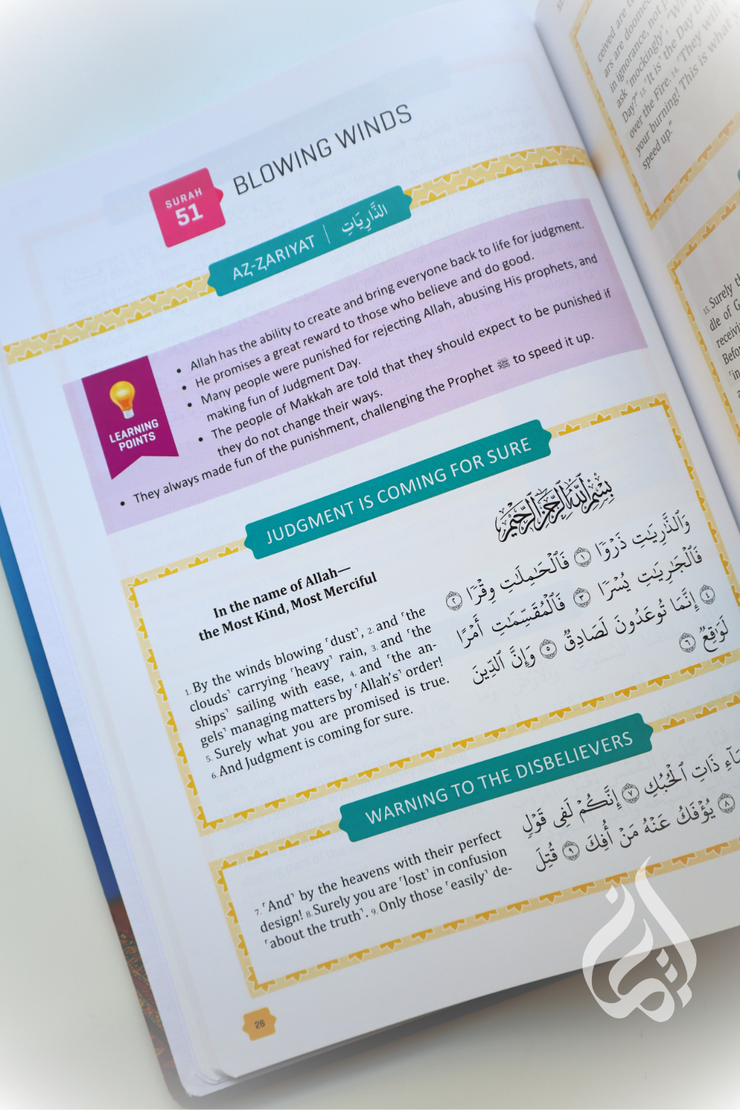 SURAH
51
BLOWING WINDS
AⱫ-ⱫARIYAT | الذَّارِيَاتِ
LEARNING
POINTS
• Allah has the ability to create and bring everyone back to life for judgment.
• He promises a great reward to those who believe and do good.
• Many people were punished for rejecting Allah, abusing His prophets, and
making fun of Judgment Day.
• The people of Makkah are told that they should expect to be punished if
they do not change their ways.
• They always made fun of the punishment, challenging the Prophet ﷺ to speed it up.
JUDGMENT IS COMING FOR SURE
بِسْمِ ٱللَّهِ ٱلرَّحْمَٰنِ ٱلرَّحِيمِ
In the name of Allah—
the Most Kind, Most Merciful
1. By the winds blowing ˹dust˺, 2. and ˹the
clouds˺ carrying ˹heavy˺ rain, 3. and ˹the
ships˺ sailing with ease, 4. and ˹the an-
gels˺ managing matters by ˹Allah's˺ order!
5. Surely what you are promised is true.
6. And Judgment is coming for sure.
وَٱلذَّٰرِيَٰتِ ذَرْوًا ١ فَٱلْحَٰمِلَٰتِ وِقْرًا ٢
فَٱلْجَٰرِيَٰتِ يُسْرًا ٣ فَٱلْمُقَسِّمَٰتِ أَمْرًا
٤ إِنَّمَا تُوعَدُونَ لَصَادِقٌ ٥ وَإِنَّ ٱلدِّينَ
لَوَٰقِعٌ ٦
WARNING TO THE DISBELIEVERS
7. ˹And˺ by the heavens with their perfect
design! 8. Surely you are ˹lost˺ in confusion
˹about the truth˺. 9. Only those ˹easily˺ de-
ذَاتِ ٱلْحُبُكِ ٧ إِنَّكُمْ لَفِى قَوْلٍ
٨ يُؤْفَكُ عَنْهُ مَنْ أُفِكَ ٩ قُتِلَ
26
ceived are
ars are doomed
in ignorance, not
ask ˹mockingly˺,
Day?" 13. "It is ˹the Day˺
over the Fire. 14. "They will
your burning! This is what
speed up."
15. Surely
dle of
receiving
Before
˹in